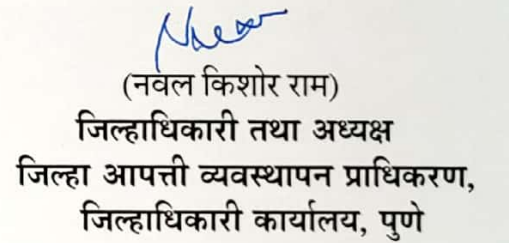 (नवल किशोर राम)
जिल्हाधिकारी तथा अध्यक्ष
जिल्हा आपत्ती व्यवस्थापन प्राधिकरण,
जिल्हाधिकारी कार्यालय, पुणे